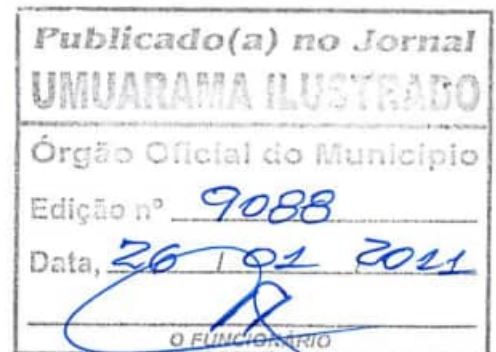 Publicado(a) no Jornal
UMUARAMA ILUSTRADO
Órgão Oficial do Município
Edição nº 9088
Data, 26 / 01 2011
O FUNCIONÁRIO